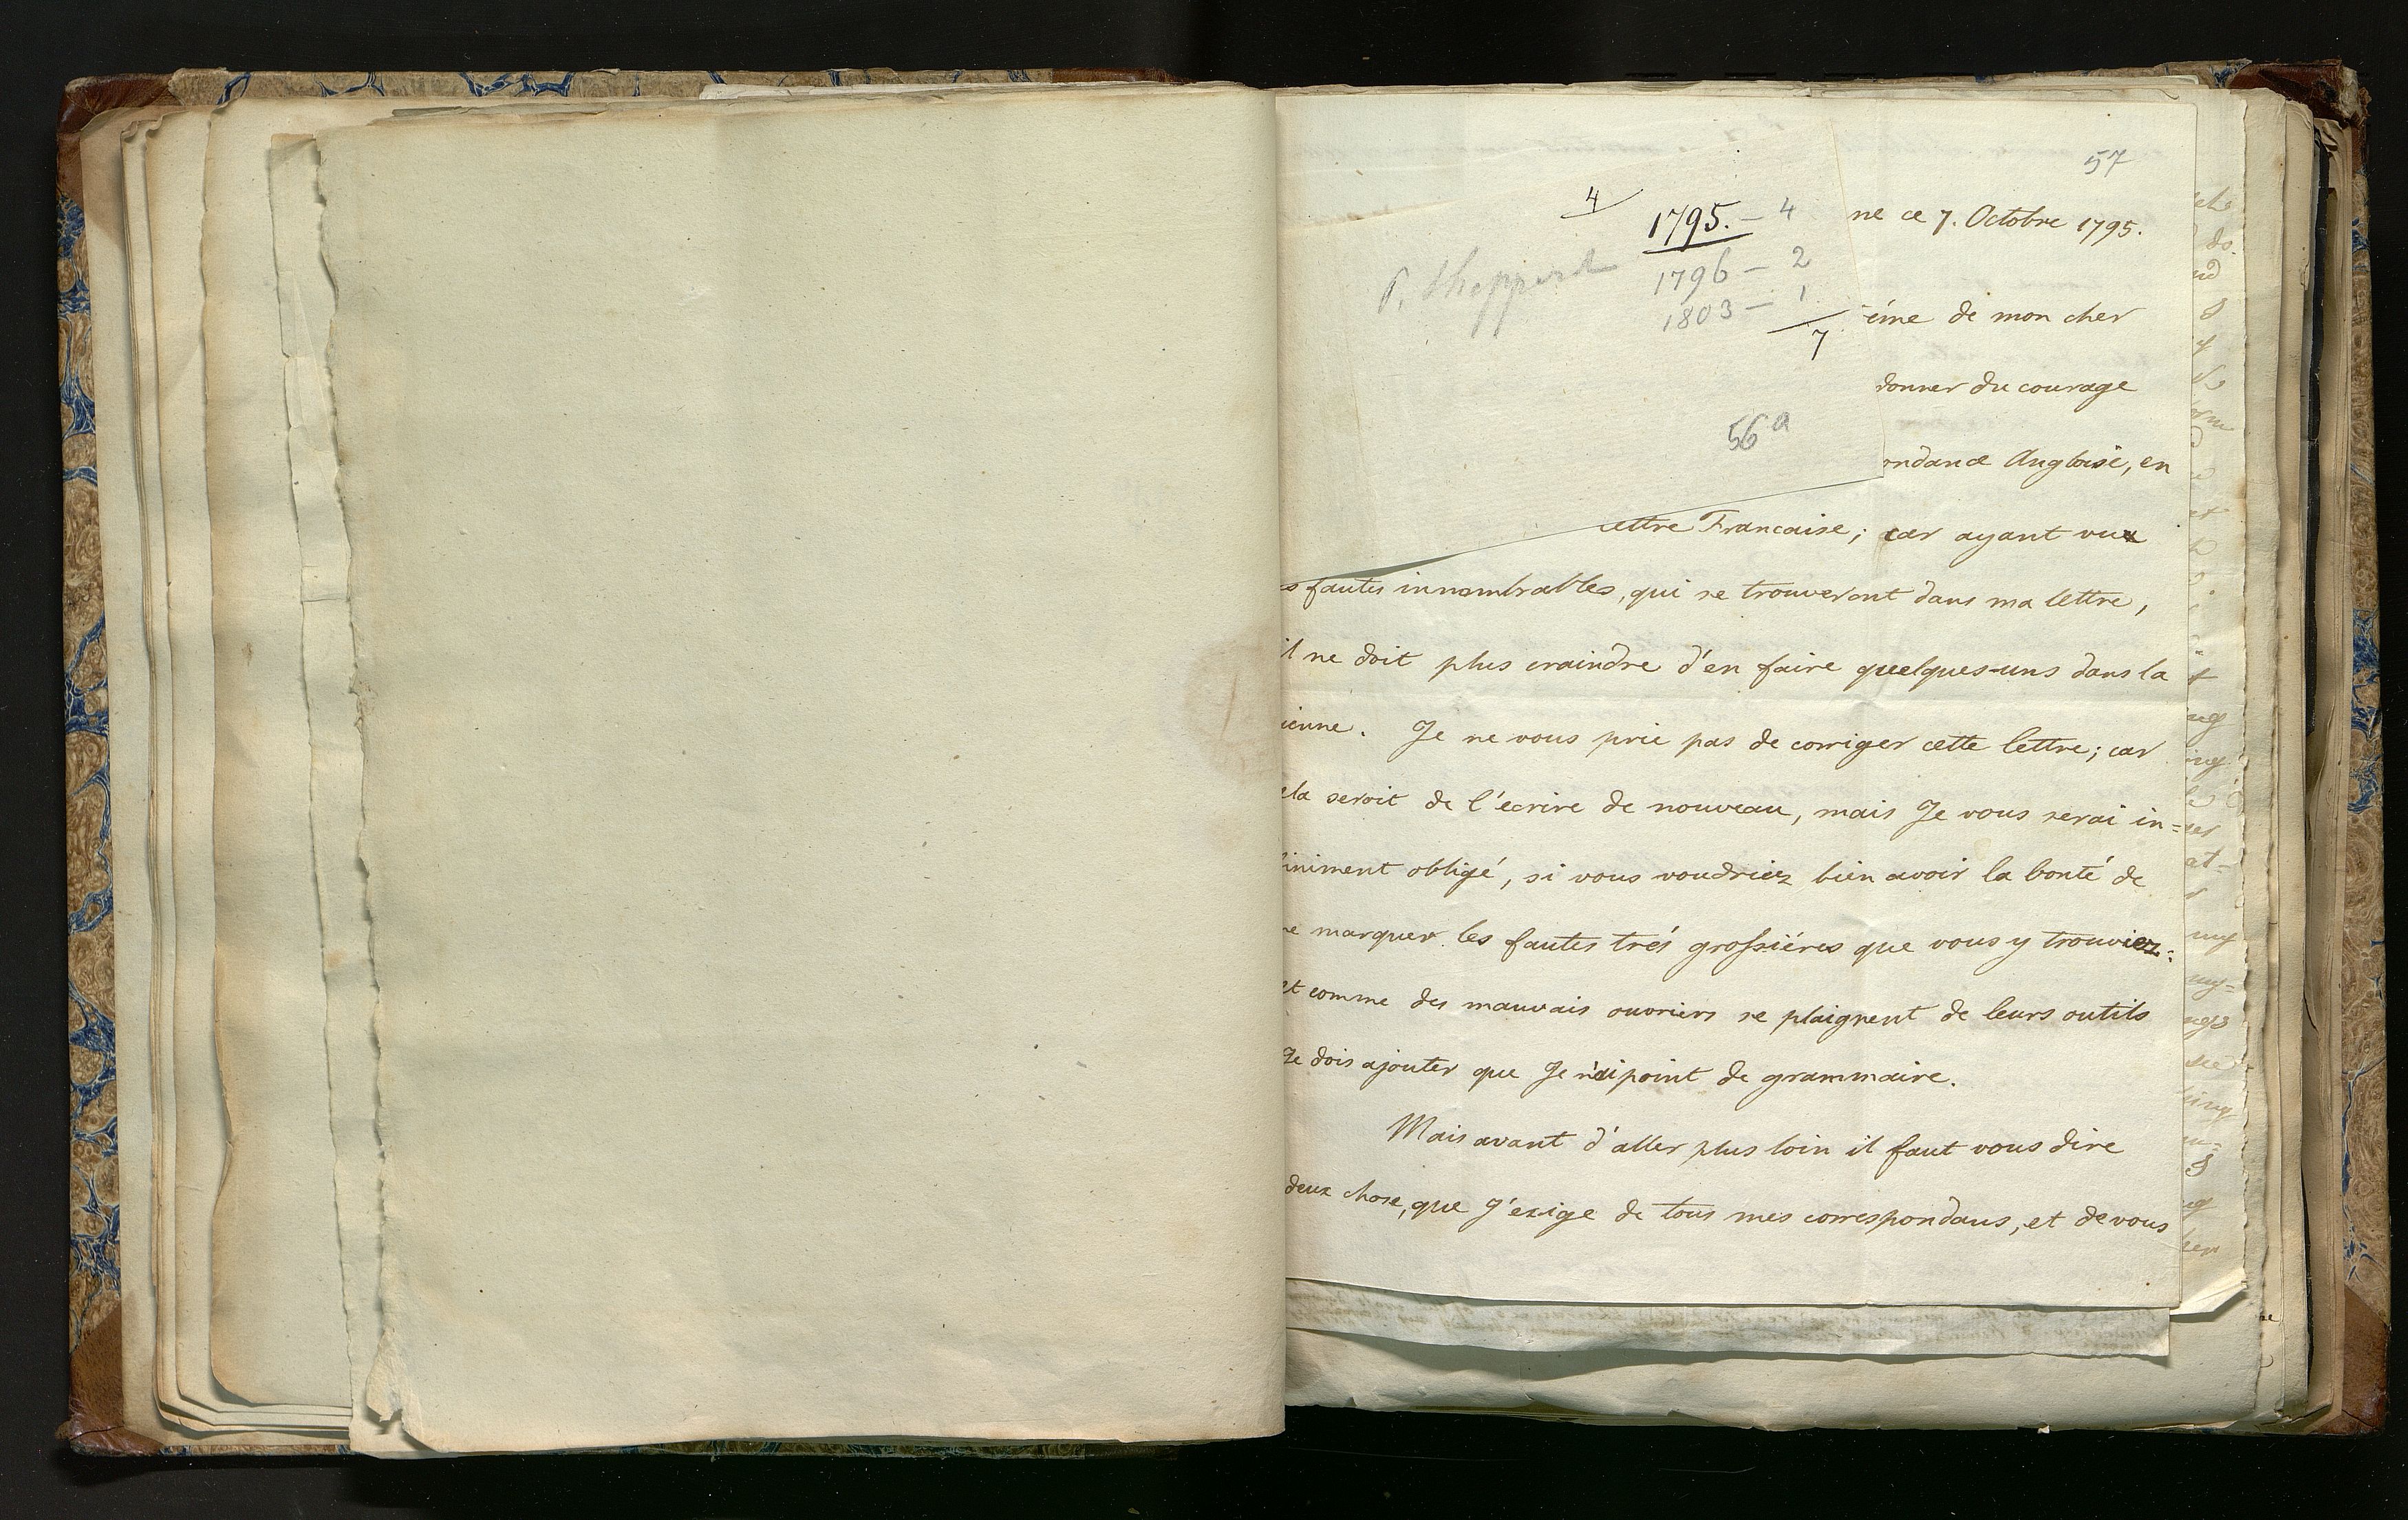 57
4
1795. — 4
1796 — 2
1803 — 1
7
P. Sheppard
56a
ne ce 7. Octobre 1795.
éme de mon cher
donner du courage
ondance Angloise, en
ettre Francaise; car ayant vu
s fautes innombrables, qui se trouveront dans ma lettre,
il ne doit plus craindre d'en faire quelques-uns dans la
ienne. Je ne vous prie pas de corriger cette lettre; car
ela seroit de l'ecrire de nouveau, mais Je vous serai in=
finiment obligé, si vous voudriez bien avoir la bonté de
ne marquer les fautes trés grossiéres que vous y trouviez:
et comme des mauvais ouvriers se plaignent de leurs outils
Je dois ajouter que Je n'ai point de grammaire.
Mais avant d'aller plus loin il faut vous dire
deux chose, que J'exige de tous mes correspondans, et de vous